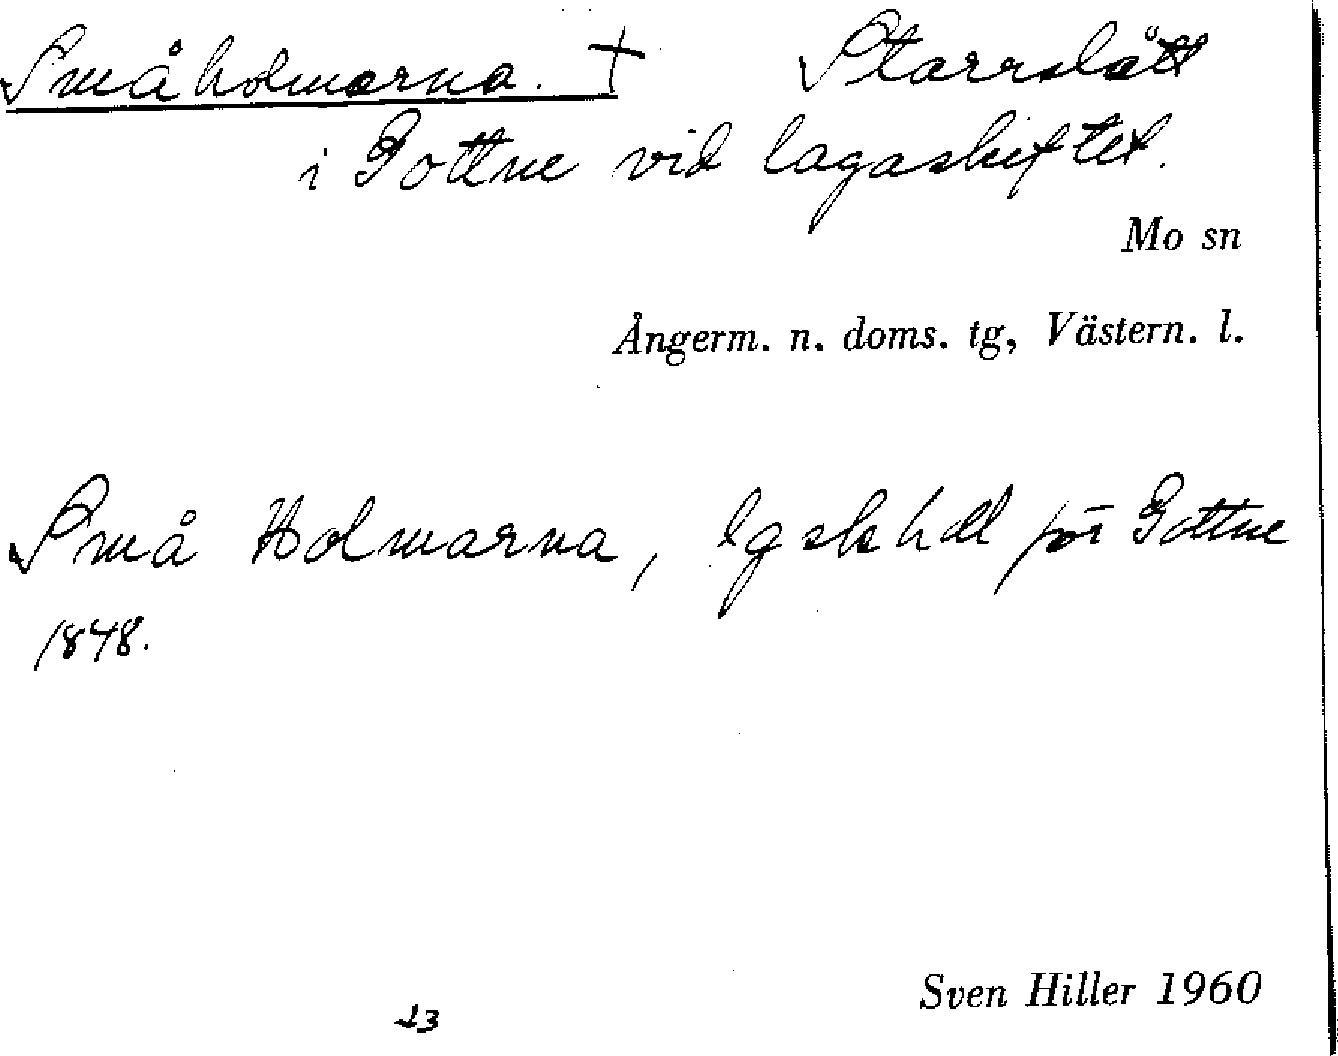 Småholmarna. † Starrslått
i Gottne vid lagaskiftet.
Mo sn
Ångerm. n. doms. tg, Västern. l.
Små Holmarna, lgsk hdl för Gottne
1848.
Sven Hiller 1960
23